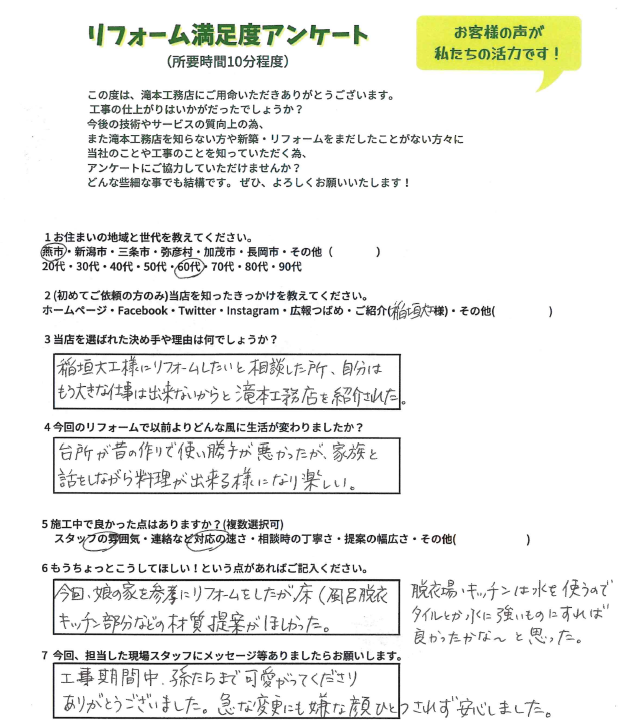 リフォーム満足度アンケート
（所要時間10分程度）
お客様の声が
私たちの活力です！
この度は、滝本工務店にご用命いただきありがとうございます。
工事の仕上がりはいかがだったでしょうか？
今後の技術やサービスの質向上の為、
また滝本工務店を知らない方や新築・リフォームをまだしたことがない方々に
当社のことや工事のことを知っていただく為、
アンケートにご協力していただけませんか？
どんな些細な事でも結構です。ぜひ、よろしくお願いいたします！
1 お住まいの地域と世代を教えてください。
燕市・新潟市・三条市・弥彦村・加茂市・長岡市・その他（　　　　）
20代・30代・40代・50代・60代・70代・80代・90代
2 (初めてご依頼の方のみ)当店を知ったきっかけを教えてください。
ホームページ・Facebook・Twitter・Instagram・広報つばめ・ご紹介(稲垣大工様)・その他(　　　　)
3 当店を選ばれた決め手や理由は何でしょうか？
稲垣大工様にリフォームしたいと相談した所、自分は
もう大きな仕事は出来ないからと滝本工務店を紹介された。
4 今回のリフォームで以前よりどんな風に生活が変わりましたか？
台所が昔の作りで使い勝手が悪かったが、家族と
話をしながら料理が出来る様になり楽しい。
5 施工中で良かった点はありますか？(複数選択可)
スタッフの雰囲気・連絡など対応の速さ・相談時の丁寧さ・提案の幅広さ・その他(　　　　)
6 もうちょっとこうしてほしい！という点があればご記入ください。
今回、娘の家を参考にリフォームをしたが床（風呂脱衣
キッチン部分などの材質提案がほしかった。
脱衣場、キッチンは水を使うので
タイルとか水に強いものにすれば
良かったかな〜と思った。
7 今回、担当した現場スタッフにメッセージ等ありましたらお願いします。
工事期間中、孫たちまで可愛がってくださり
ありがとうございました。急な変更にも嫌な顔ひとつされず安心しました。